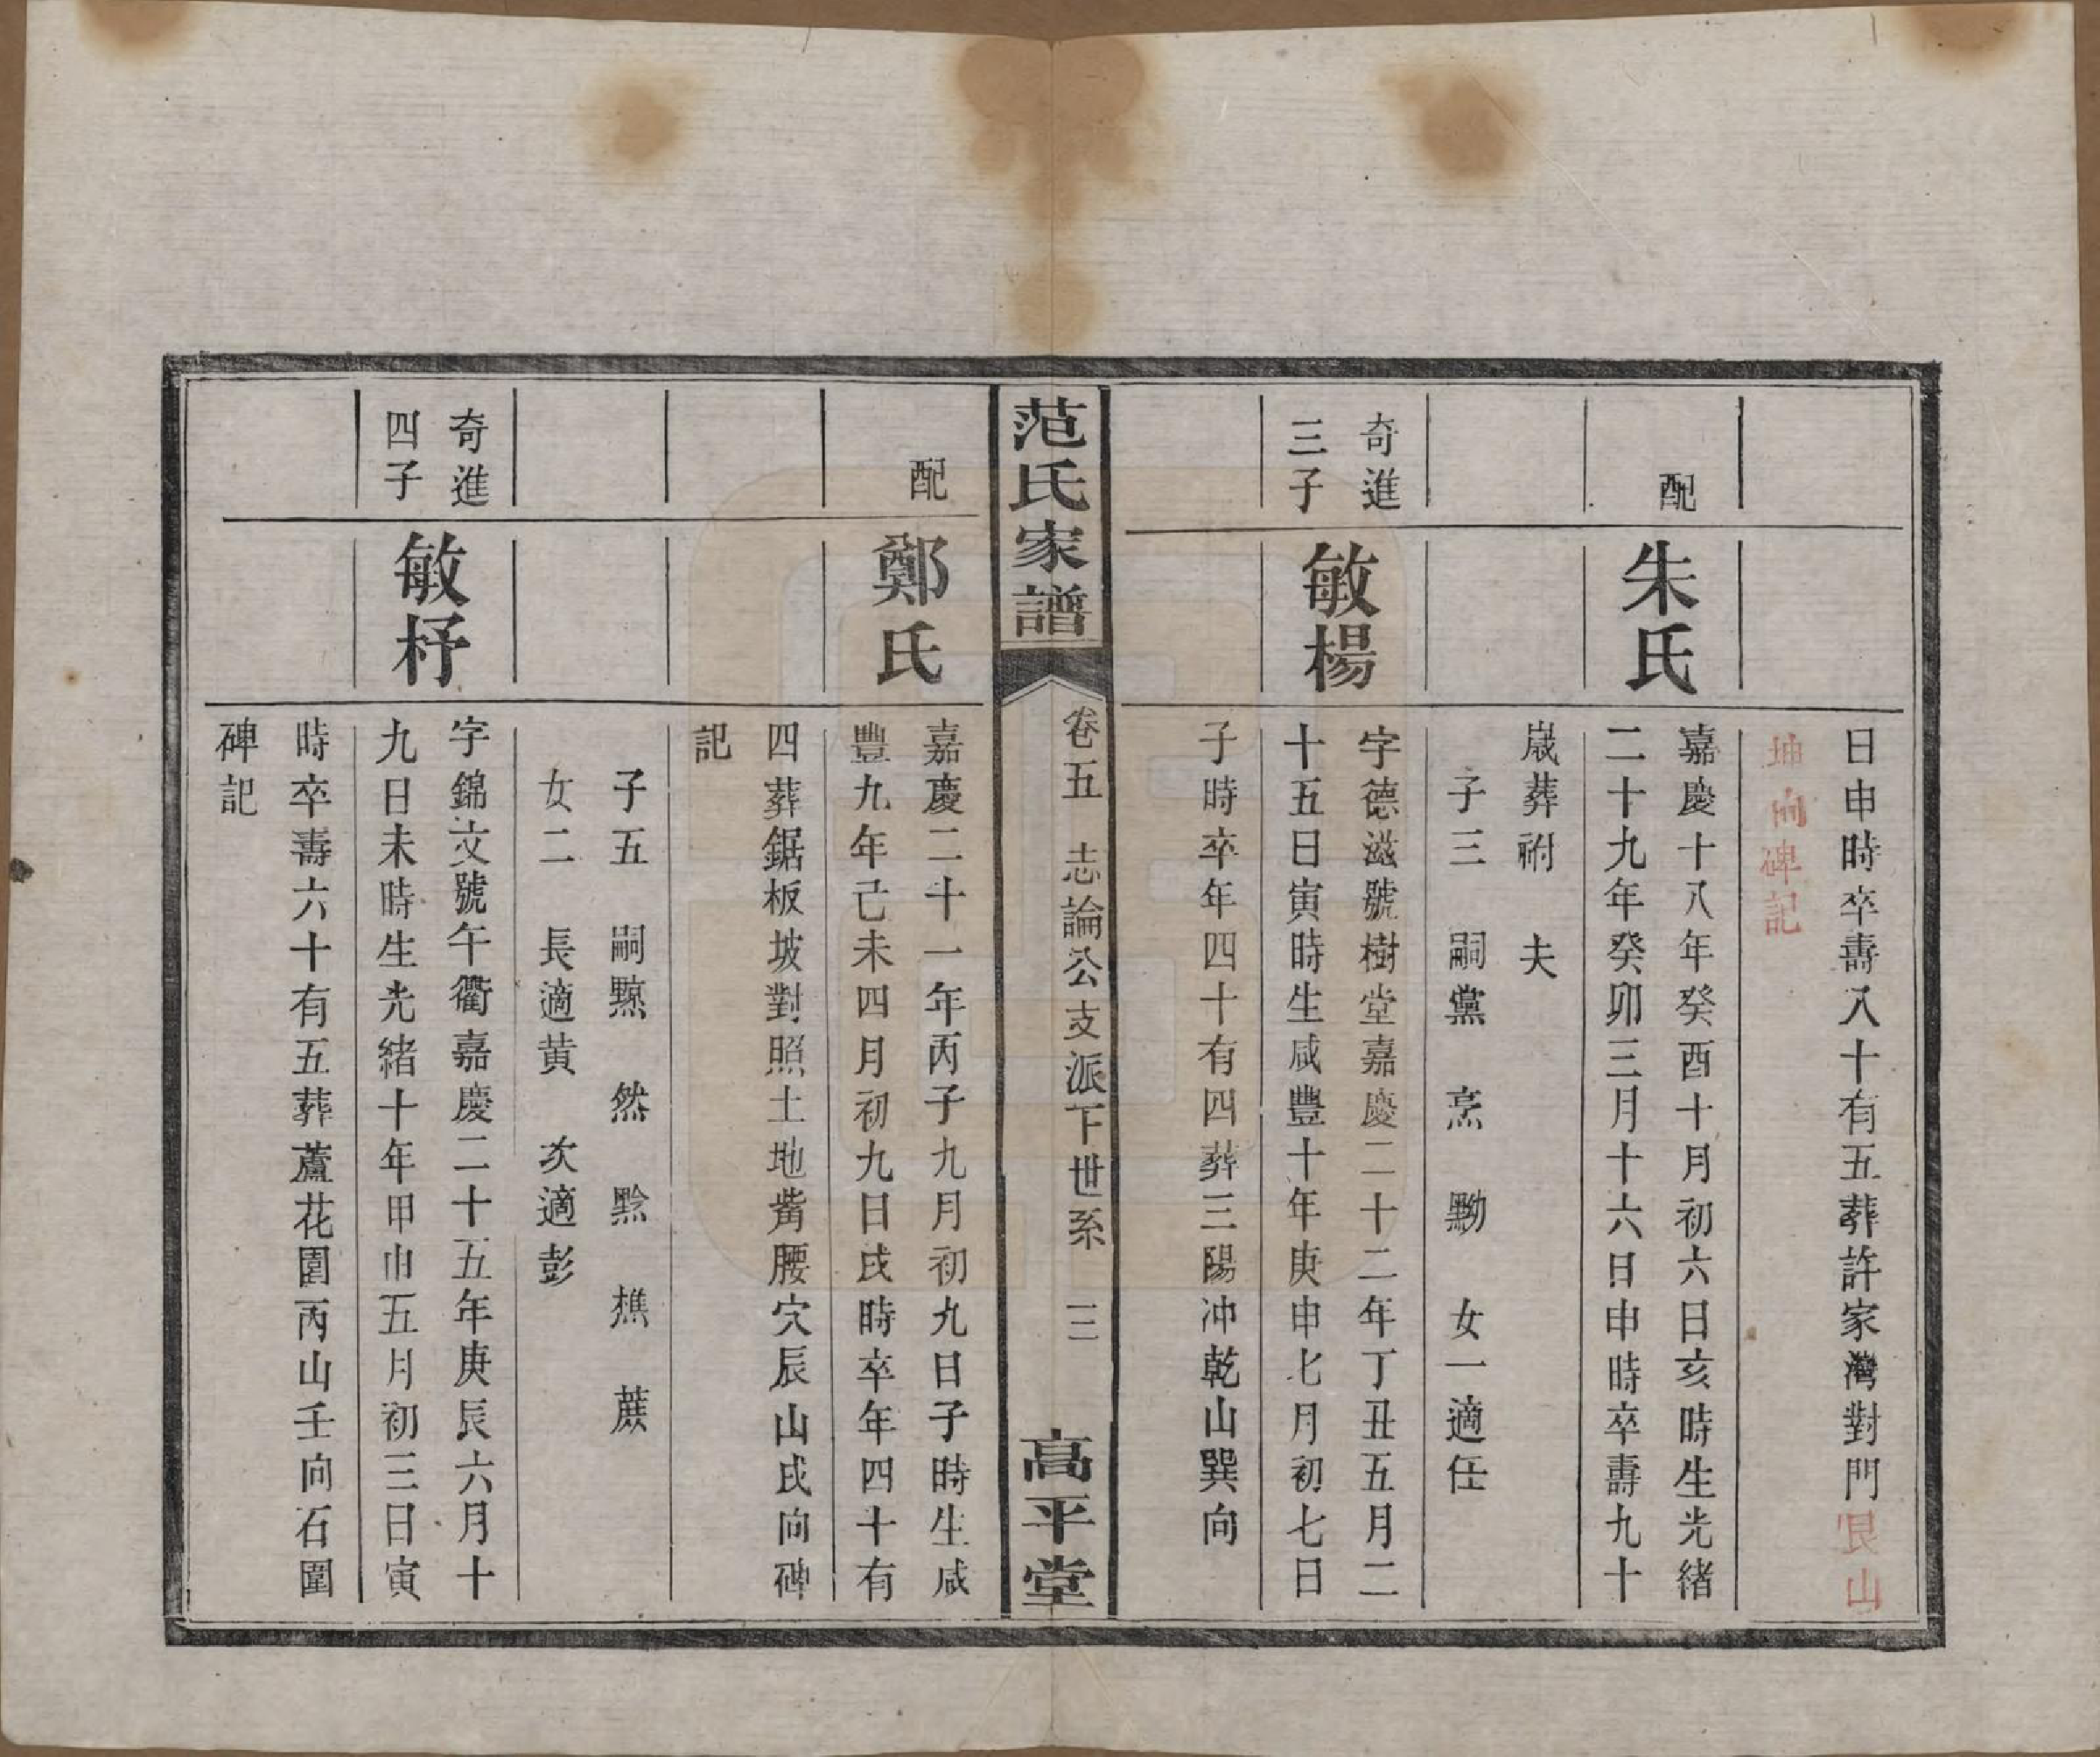 日申時卒壽八十有五葬許家灣對門艮山
坤向碑記
配
朱氏
嘉慶十八年癸酉十月初六日亥時生光緒
二十九年癸卯三月十六日申時卒壽九十
歲葬祔　夫
子三　嗣黨　烹　黝　女一適任
奇進
三子
敏楊
字德滋號樹堂嘉慶二十二年丁丑五月二
十五日寅時生咸豐十年庚申七月初七日
子時卒年四十有四葬三陽沖乾山巽向
范氏家譜
卷五　志論公支派下世系　三
高平堂
配
鄭氏
嘉慶二十一年丙子九月初九日子時生咸
豐九年己未四月初九日戌時卒年四十有
四葬鋸板坡對照土地觜腰穴辰山戌向碑
記
子五　嗣黥　然　黔　樵　蔗
女二　長適黃　次適彭
奇進
四子
敏杼
字錦文號午衢嘉慶二十五年庚辰六月十
九日未時生光緒十年甲申五月初三日寅
時卒壽六十有五葬蘆花園丙山壬向石圍
碑記